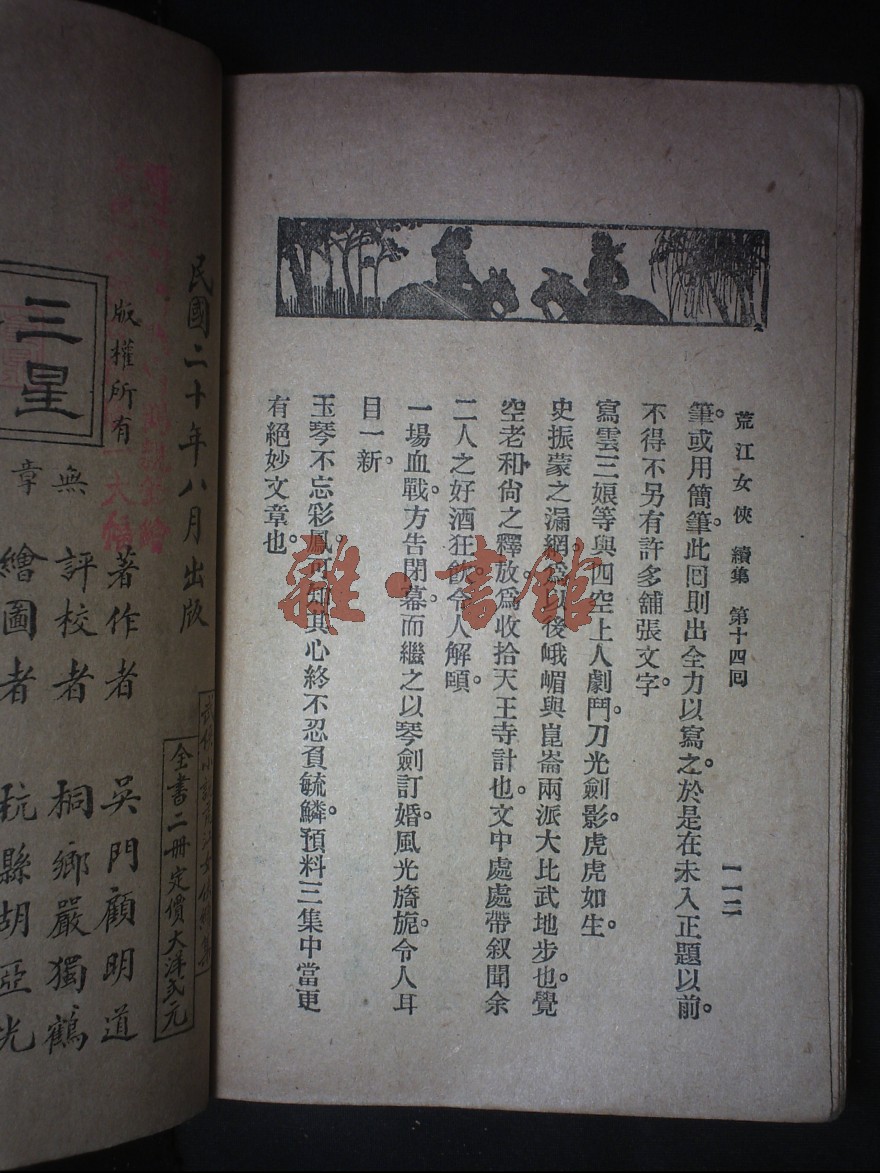 荒江女俠　續集　第十四回
一一二
筆。或用簡筆。此囘則出全力以寫之。於是在未入正題以前。
不得不另有許多舖張文字。
寫雲三娘等與四空上人劇鬥。刀光劍影。虎虎如生。
史振蒙之漏網。爲以後峨嵋與崑崙兩派大比武地步也。覺
空老和尙之釋放。爲收拾天王寺計也。文中處處帶叙聞余
二人之好酒狂飲。令人解頤。
一場血戰。方告閉幕。而繼之以琴劍訂婚。風光旖旎。令人耳
目一新。
玉琴不忘彩鳳。可知其心終不忍負毓鱗。預料三集中當更
有絕妙文章也。
雜·書館
民國二十年八月出版
版權所有
三星
全書二冊定價大洋貳元
著作者　吳門顧明道
無　評校者　桐鄉嚴獨鶴
章　繪圖者　杭縣胡亞光